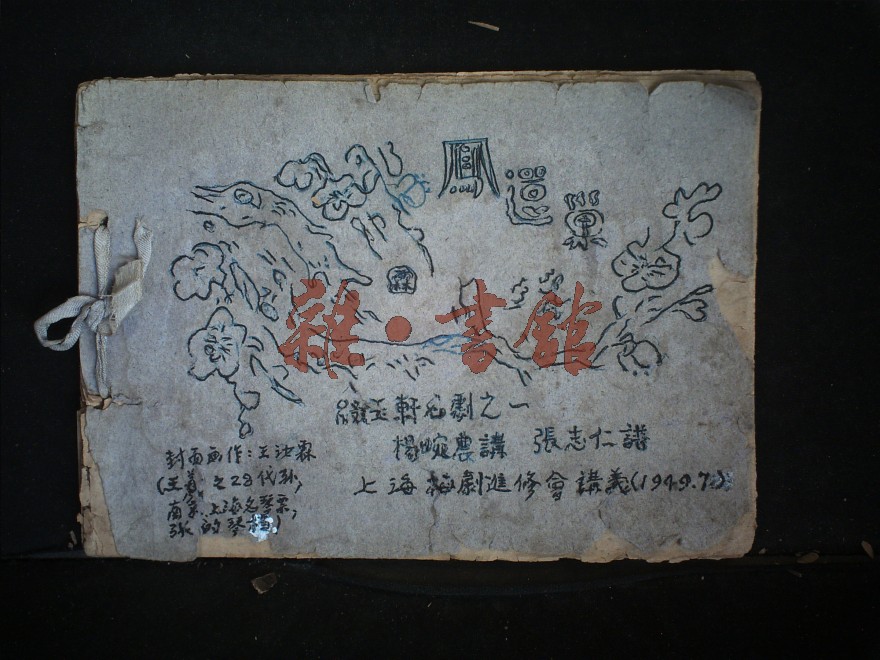 鳳還巢
霖
雜·書館
綴玉軒名劇之一
楊畹農講 張志仁譜
上海梅劇進修會講義(1949.7.)
封面画作:王汝霖
(王 之28代孙,
商票,上海名琴票,
张 的琴 )